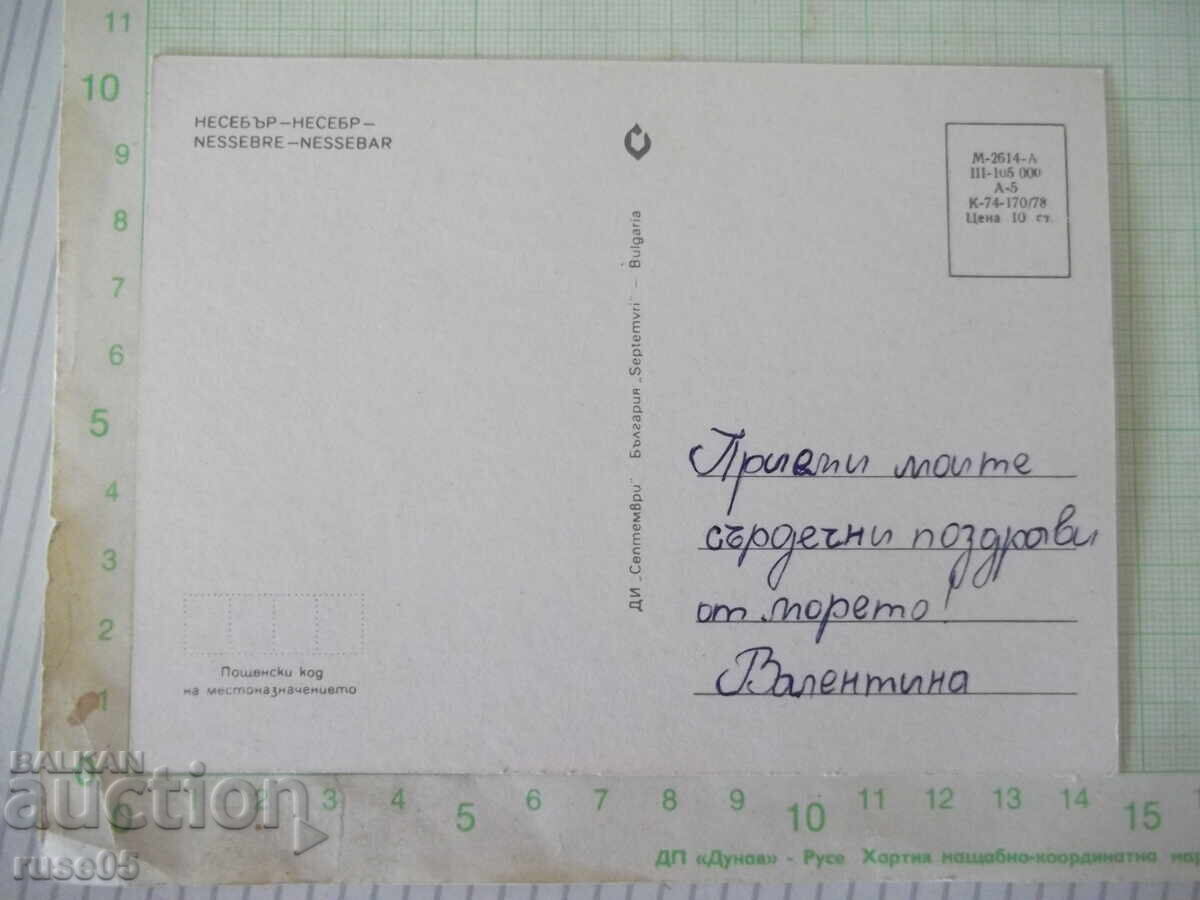 11
10
9
8
7
6
5
4
3
2
1
0
НЕСЕБЪР–НЕСЕБР–
NESSEBRE–NESSEBAR
ДИ „Септември" България „Septemvri" – Bulgaria
М-2614-А
III-105 000
А-5
К-74-170/78
Цена 10 ст.
Приеми моите
сърдечни поздрави
от морето!
Валентина
Пощенски код
на местоназначението
0 1 2 3 4 5 6 7 8 9 10 11 12 13 14 15
ДП «Дунав» - Русе Хартия мащабно-координатна
BALKAN
auction
ruse05